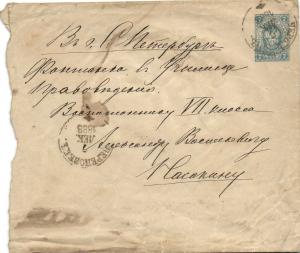 Въ г. С Петербургъ
Фонтанка въ Училище
Правоведенія.
Воспитаннику VII класса
Александру Васильевичу
ДЕК.
1888